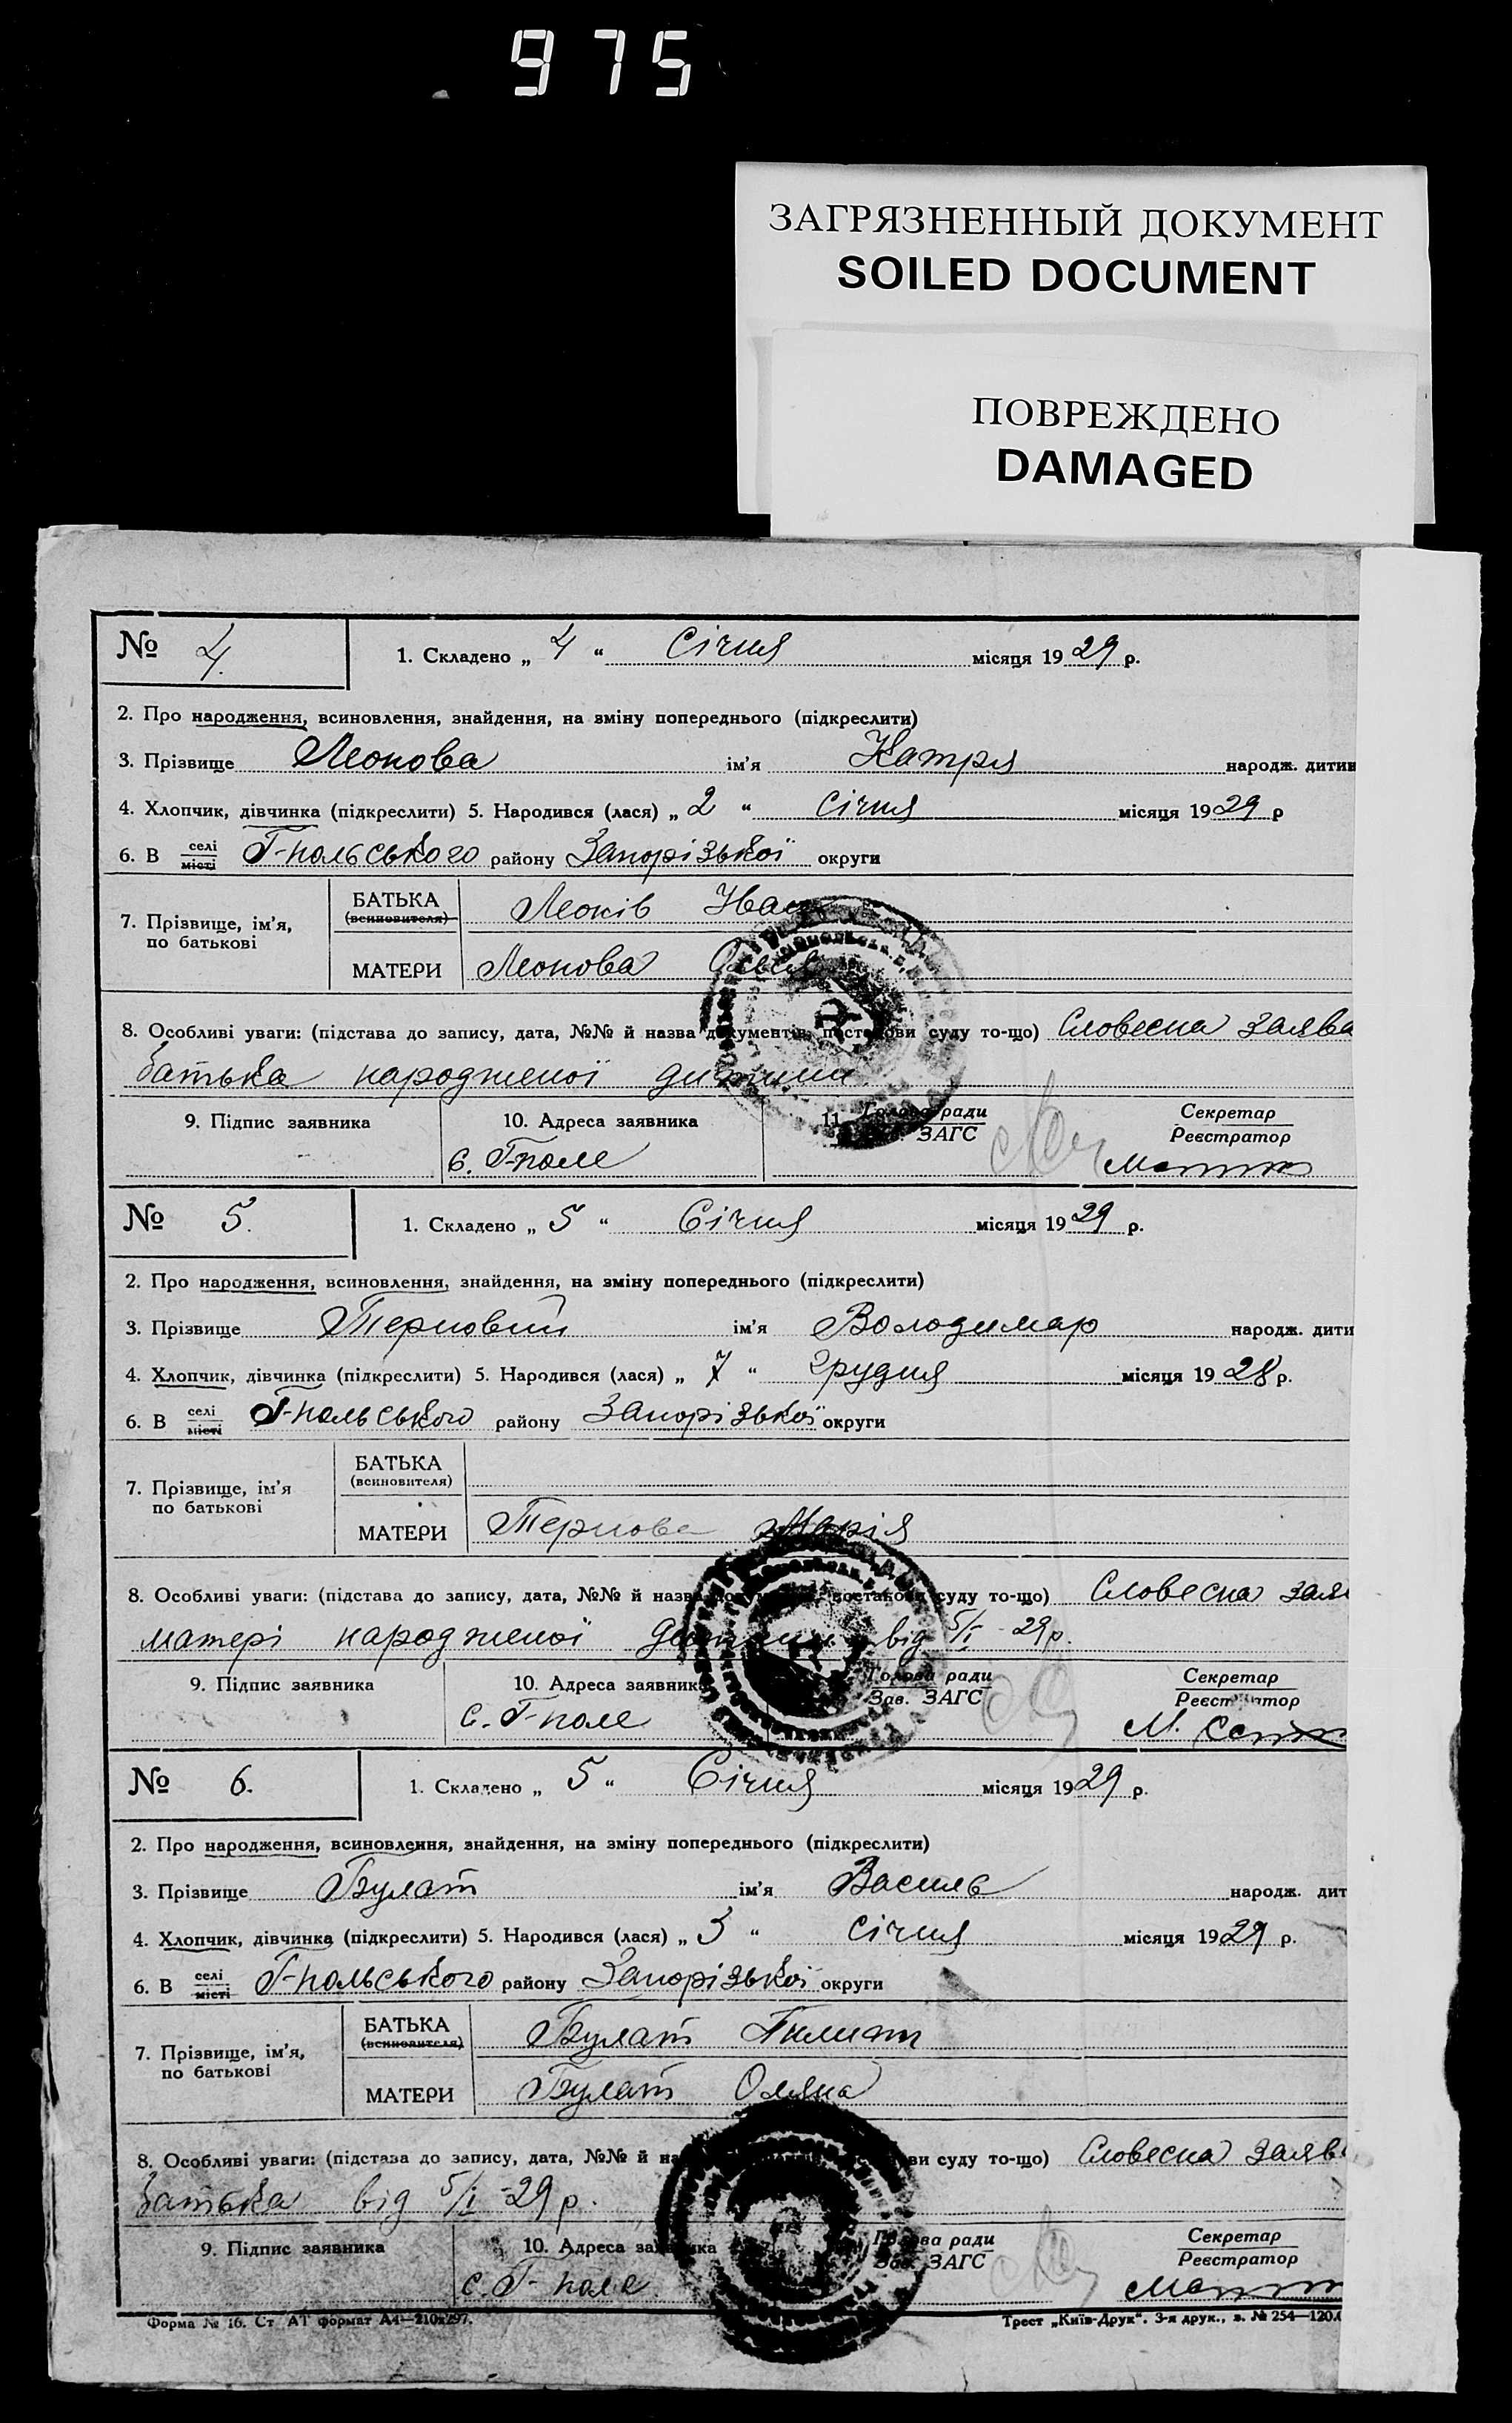 975
ЗАГРЯЗНЕННЫЙ ДОКУМЕНТ
SOILED DOCUMENT
ПОВРЕЖДЕНО
DAMAGED
№ 4. 1. Складено „ 4 “ Січня місяця 1929 р.
2. Про народження, всиновлення, знайдення, на зміну попереднього (підкреслити)
3. Прізвище Леонова ім’я Катря народж. дитин
4. Хлопчик, дівчинка (підкреслити) 5. Народився (лася) „ 2 “ січня місяця 1929 р
6. В селі місті Г-польського району Запорізької округи
7. Прізвище, ім’я, по батькові
БАТЬКА (всиновителя) Леонів Іван
МАТЕРИ Леонова
8. Особливі уваги: (підстава до запису, дата, №№ й назва документів, постанови суду то-що) Словесна заява
батька народженої дитини
9. Підпис заявника 10. Адреса заявника 11. Голова ради Секретар
ЗАГС Реєстратор
с. Г-поле
№ 5. 1. Складено „ 5 “ Січня місяця 1929 р.
2. Про народження, всиновлення, знайдення, на зміну попереднього (підкреслити)
3. Прізвище Терновий ім’я Володимар народж. дити
4. Хлопчик, дівчинка (підкреслити) 5. Народився (лася) „ 7 “ грудня місяця 1928 р.
6. В селі місті Г-польського району Запорізької округи
7. Прізвище, ім’я по батькові
БАТЬКА (всиновителя)
МАТЕРИ Тернова Марія
8. Особливі уваги: (підстава до запису, дата, №№ й назва постанови суду то-що) Словесна заяв
матері народженої дитини від 5/I - 29 р.
9. Підпис заявника 10. Адреса заявника Голова ради Секретар
Зав. ЗАГС Реєстратор
с. Г-поле
№ 6. 1. Складено „ 5 “ Січня місяця 1929 р.
2. Про народження, всиновлення, знайдення, на зміну попереднього (підкреслити)
3. Прізвище Булат ім’я Василь народж. дит
4. Хлопчик, дівчинка (підкреслити) 5. Народився (лася) „ 3 “ січня місяця 1929 р.
6. В селі місті Г-польського району Запорізької округи
7. Прізвище, ім’я, по батькові
БАТЬКА (всиновителя) Булат Пилип
МАТЕРИ Булат Оляна
8. Особливі уваги: (підстава до запису, дата, №№ й суду то-що) Словесна заяв
батька від 5/I - 29 р.
9. Підпис заявника 10. Адреса заявника Голова ради Секретар
Зав. ЗАГС Реєстратор
с. Г-поле
Форма № 16. Ст АТ формат А4—210х297. Трест „Київ-Друк“. 3-я друк., з. № 254—120.